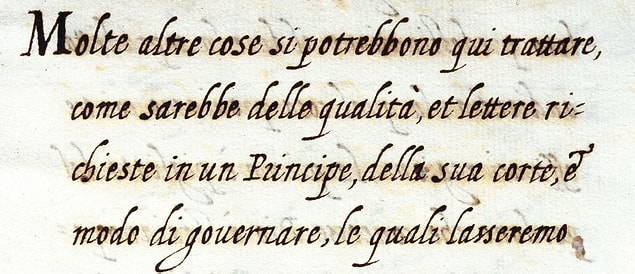 Molte altre cose si potrebbono qui trattare,
come sarebbe delle qualità, et lettere ri-
chieste in un Principe, della sua corte, e
modo di governare, le quali lasseremo